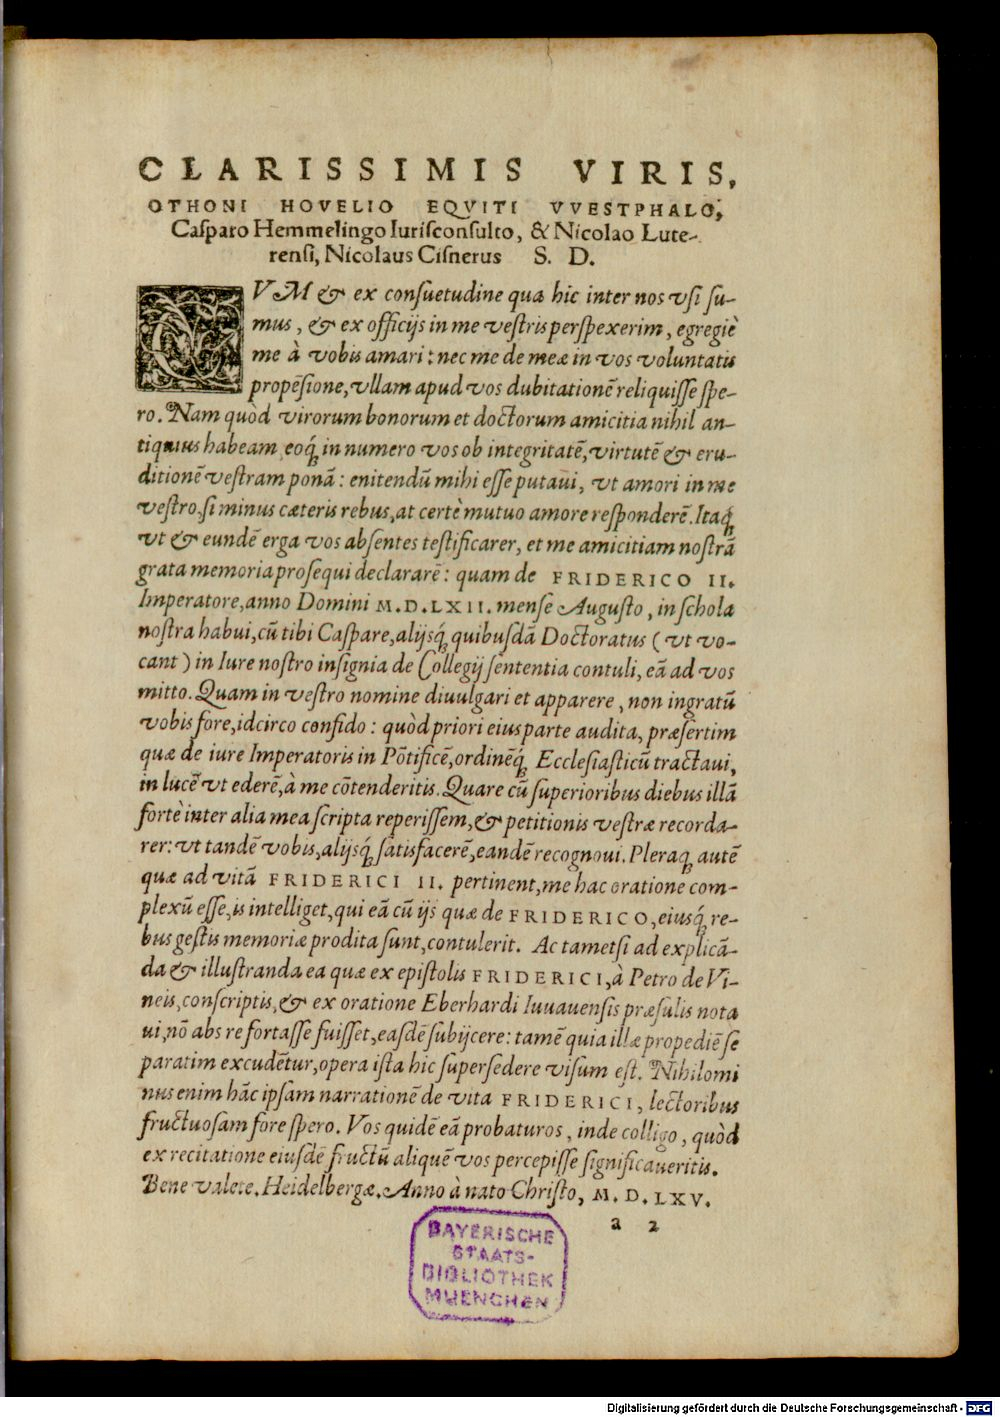 CLARISSIMIS VIRIS,
OTHONI HOVELIO EQVITI VVESTPHALO,
Casparo Hemmelingo Iurisconsulto, & Nicolao Lute-
rensi, Nicolaus Cisnerus S. D.
CVM & ex consuetudine qua hic inter nos vsi su-
mus, & ex officijs in me vestris perspexerim, egregiè
me à vobis amari: nec me de meæ in vos voluntatis
propẽsione, vllam apud vos dubitationẽ reliquisse spe-
ro. Nam quòd virorum bonorum et doctorum amicitia nihil an-
tiquius habeam, eoq́; in numero vos ob integritatẽ, virtutẽ & eru-
ditionẽ vestram ponã: enitendũ mihi esse putaui, vt amori in me
vestro, si minus cæteris rebus, at certè mutuo amore responderẽ. Itaq́;
vt & eundẽ erga vos absentes testificarer, et me amicitiam nostrã
grata memoria prosequi declararẽ: quam de FRIDERICO II.
Imperatore, anno Domini M.D.LXII. mense Augusto, in schola
nostra habui, cũ tibi Caspare, alijsq́; quibusdã Doctoratus (vt vo-
cant) in Iure nostro insignia de Collegij sententia contuli, eã ad vos
mitto. Quam in vestro nomine diuulgari et apparere, non ingratũ
vobis fore, idcirco confido: quòd priori eius parte audita, præsertim
quæ de iure Imperatoris in Põtificẽ, ordinẽq́; Ecclesiasticũ tractaui,
in lucẽ vt ederẽ, à me cõtenderitis. Quare cũ superioribus diebus illã
fortè inter alia mea scripta reperissem, & petitionis vestræ recorda-
rer: vt tandẽ vobis, alijsq́; satisfacerẽ, eandẽ recognoui. Pleraq; autẽ
quæ ad vitã FRIDERICI II. pertinent, me hac oratione com-
plexũ esse, is intelliget, qui eã cũ ijs quæ de FRIDERICO, eiusq́; re-
bus gestis memoriæ prodita sunt, contulerit. Ac tametsi ad explicã-
da & illustranda ea quæ ex epistolis FRIDERICI, à Petro de Vi-
neis, conscriptis, & ex oratione Eberhardi Iuuauensis præsulis nota
ui, nõ abs re fortasse fuisset, easdẽ subijcere: tamẽ quia illæ propediẽ se
paratim excudẽtur, opera ista hic supersedere visum est. Nihilomi
nus enim hãc ipsam narrationẽ de vita FRIDERICI, lectoribus
fructuosam fore spero. Vos quidẽ eã probaturos, inde colligo, quòd
ex recitatione eiusdẽ fructũ aliquẽ vos percepisse significaueritis.
Bene valete. Heidelbergæ. Anno à nato Christo, M. D. LXV.
a 2
BAYERISCHE
STAATS-
BIBLIOTHEK
MUENCHEN
Digitalisierung gefördert durch die Deutsche Forschungsgemeinschaft - DFG